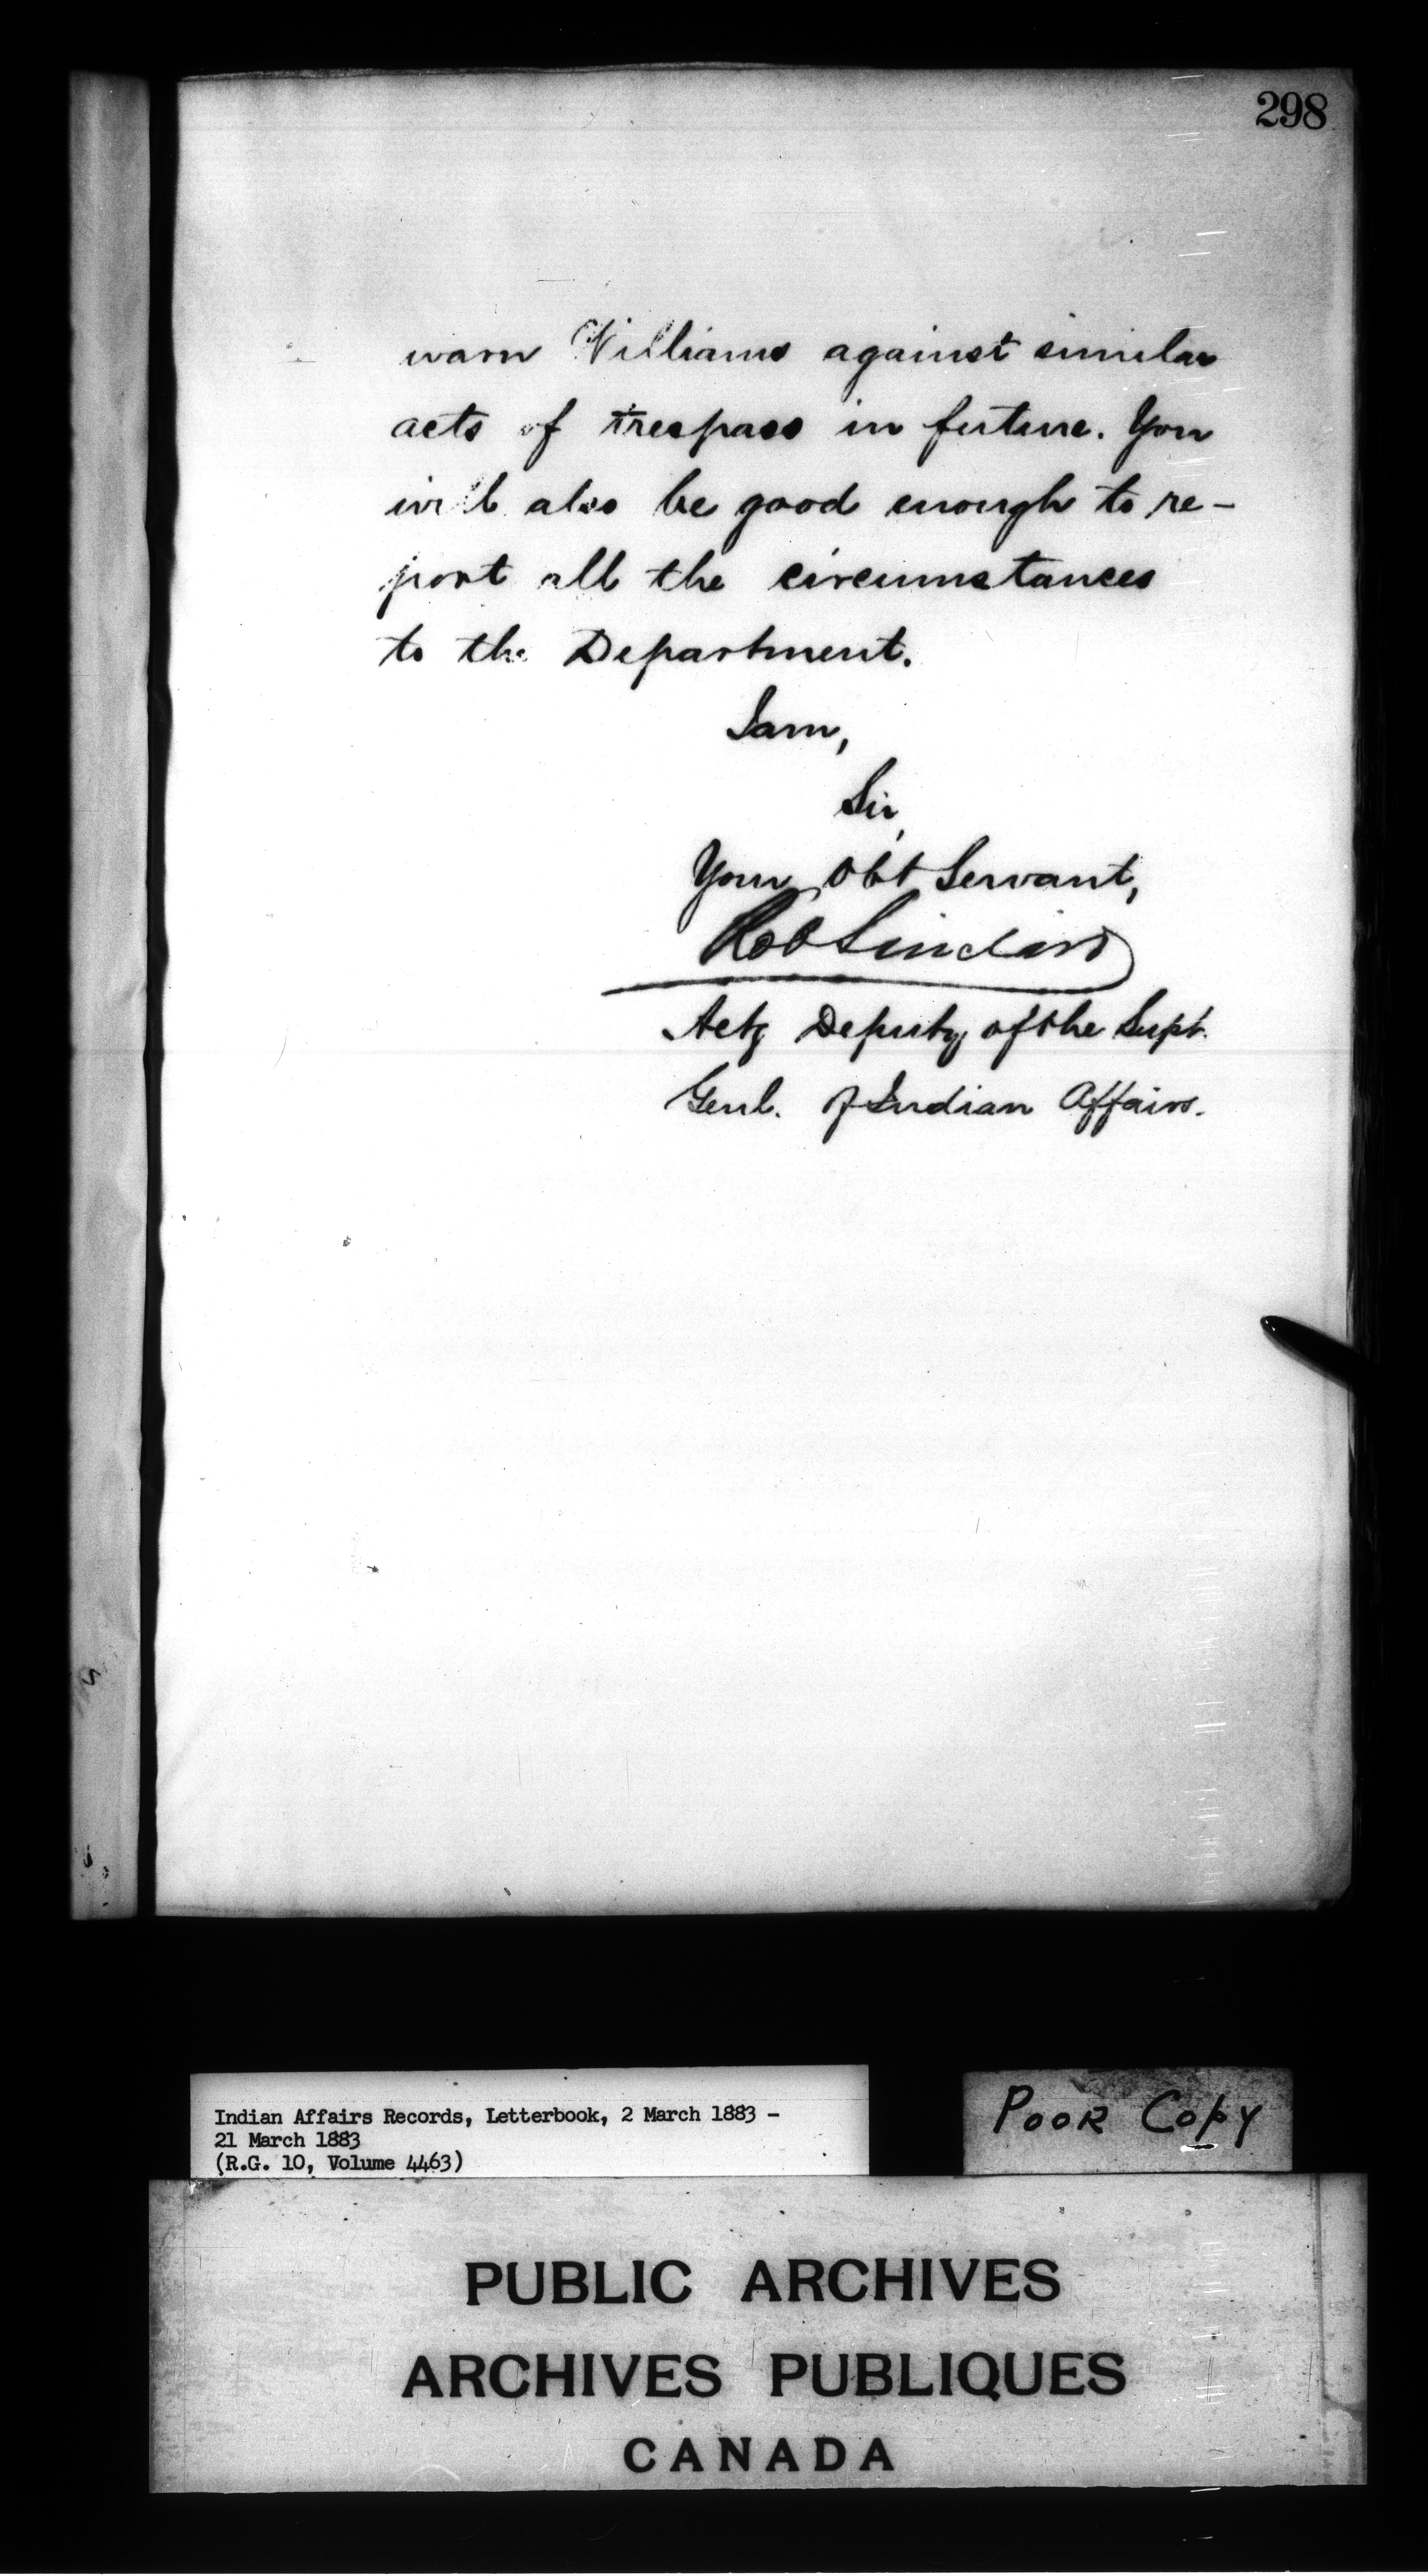 298
warn Williams against similar
acts of trespass in future. You
will also be good enough to re-
port all the circumstances
to the Department.
I am,
Sir,
Your Obt Servant,
Rob Sinclair
Actg Deputy of the Supt.
Genl. of Indian Affairs.
Indian Affairs Records, Letterbook, 2 March 1883 -
21 March 1883
(R.G. 10, Volume 4463)
POOR COPY
PUBLIC ARCHIVES
ARCHIVES PUBLIQUES
CANADA